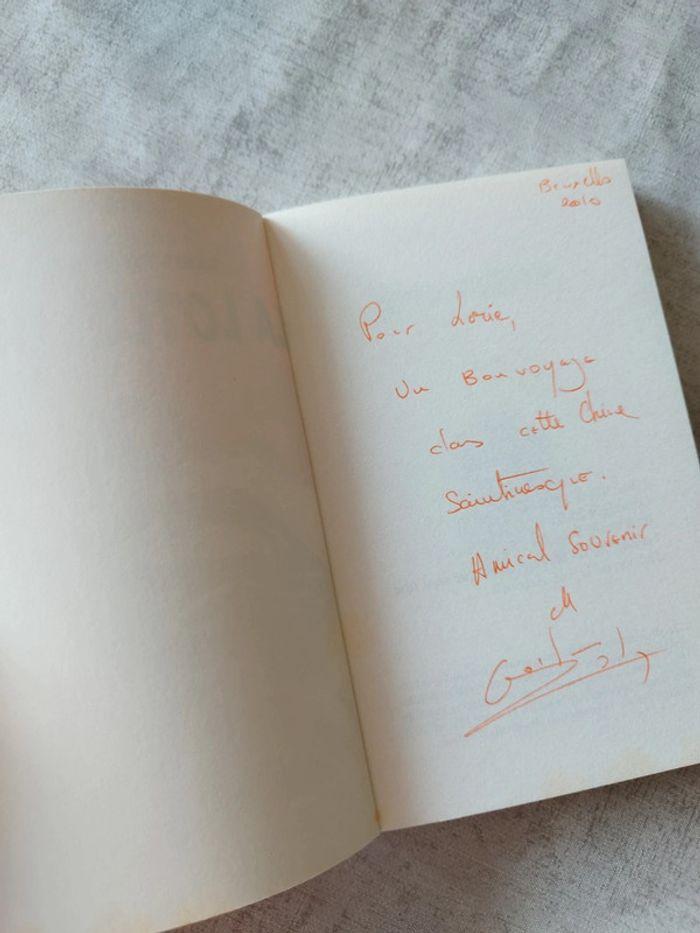 Bruxelles
2010
Pour Lorie,
Un Bon voyage
dans cette Chine
Saintinesque.
Amical Souvenir